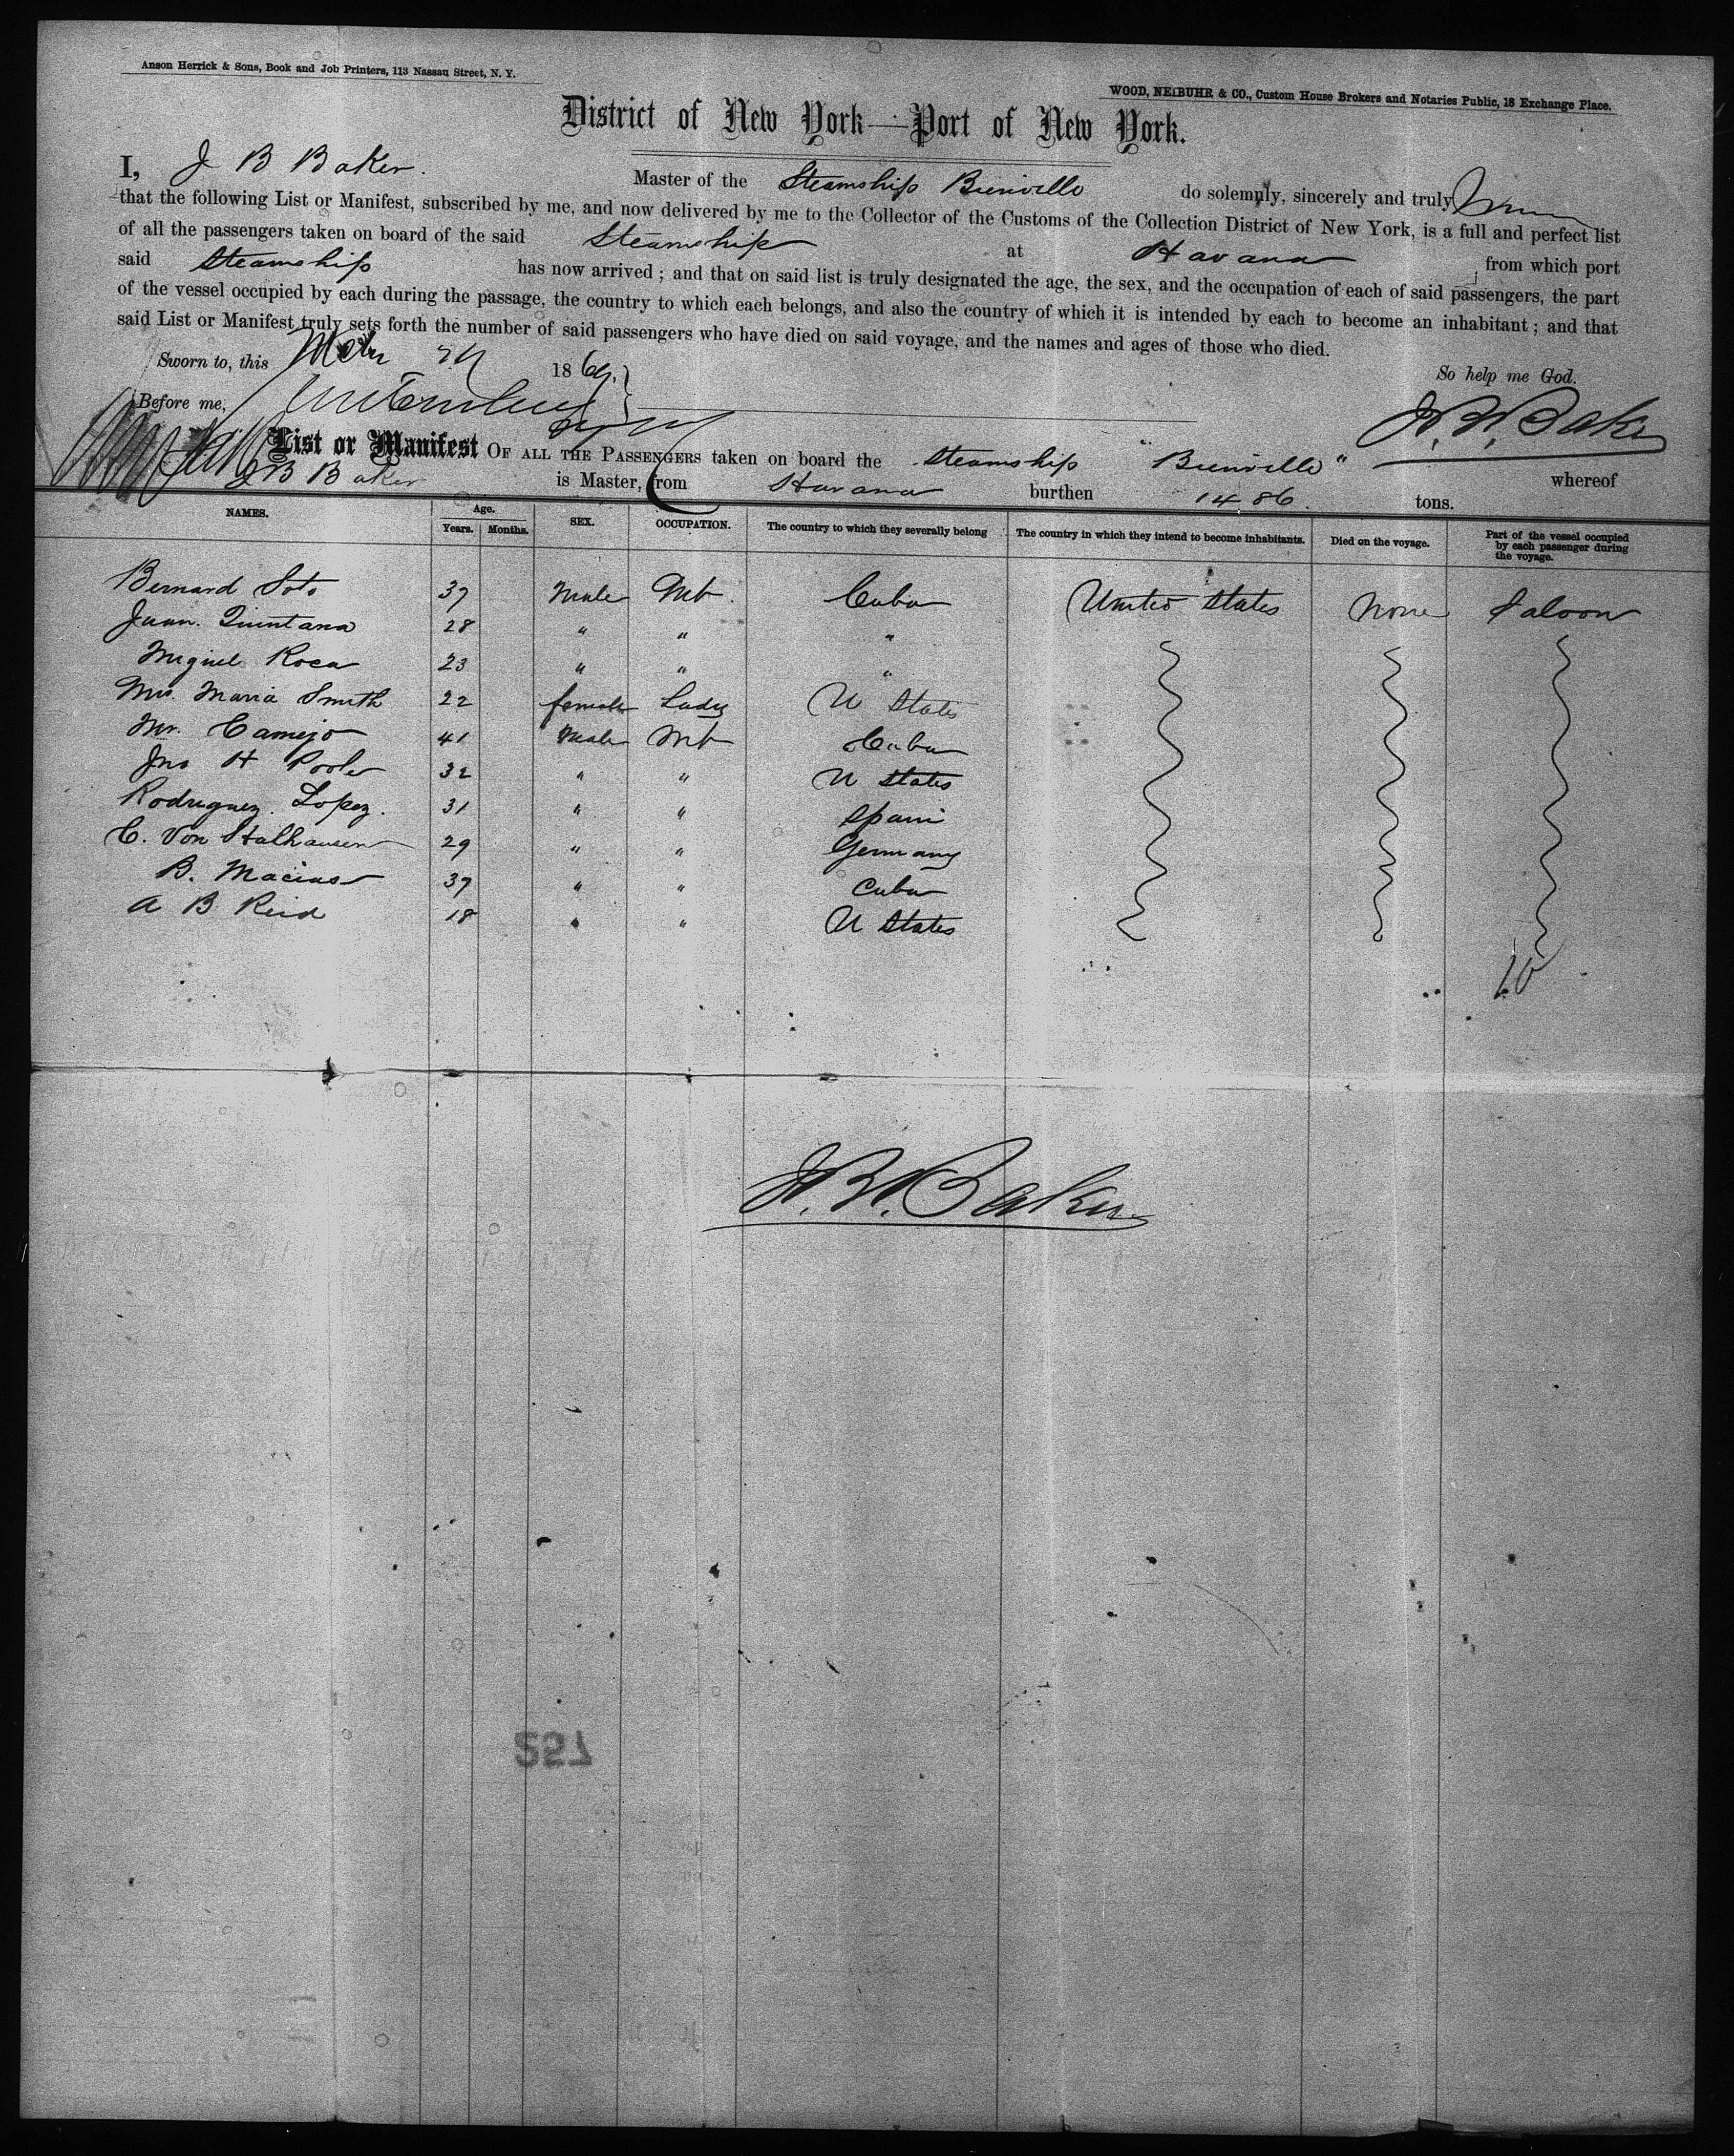 Anson Herrick & Sons, Book and Job Printers, 113 Nassau Street, N. Y.
WOOD, NEIBUHR & CO., Custom House Brokers and Notaries Public, 18 Exchange Place.
District of New York—Port of New York.
I, J B Baker. Master of the Steamship Bienville do solemnly, sincerely and truly
that the following List or Manifest, subscribed by me, and now delivered by me to the Collector of the Customs of the Collection District of New York, is a full and perfect list
of all the passengers taken on board of the said Steamship at Havana from which port
said Steamship has now arrived; and that on said list is truly designated the age, the sex, and the occupation of each of said passengers, the part
of the vessel occupied by each during the passage, the country to which each belongs, and also the country of which it is intended by each to become an inhabitant; and that
said List or Manifest truly sets forth the number of said passengers who have died on said voyage, and the names and ages of those who died.
Sworn to, this 1869. So help me God.
Before me, J. B. Baker
List or Manifest OF ALL THE PASSENGERS taken on board the Steamship "Bienville" whereof
J B Baker is Master, from Havana burthen 1486. tons.
NAMES. Age. Years. Months. SEX. OCCUPATION. The country to which they severally belong The country in which they intend to become inhabitants. Died on the voyage. Part of the vessel occupied by each passenger during the voyage.
Bernard Soto 37 Male Mt. Cuba United States None Saloon
Juan. Quintana 28 " " "
Miguel Roca 23 " " "
Mrs. Maria Smith 22 female Lady U States
Mr. Camejo 41 Male Mt Cuba
Jno H Poole 32 " " U States
Rodriguez Lopez. 31 " " Spain
C. Von Stalhausen 29 " " Germany
B. Macias 37 " " Cuba
A B Reid 18 " " U States
10
J. B. Baker
257